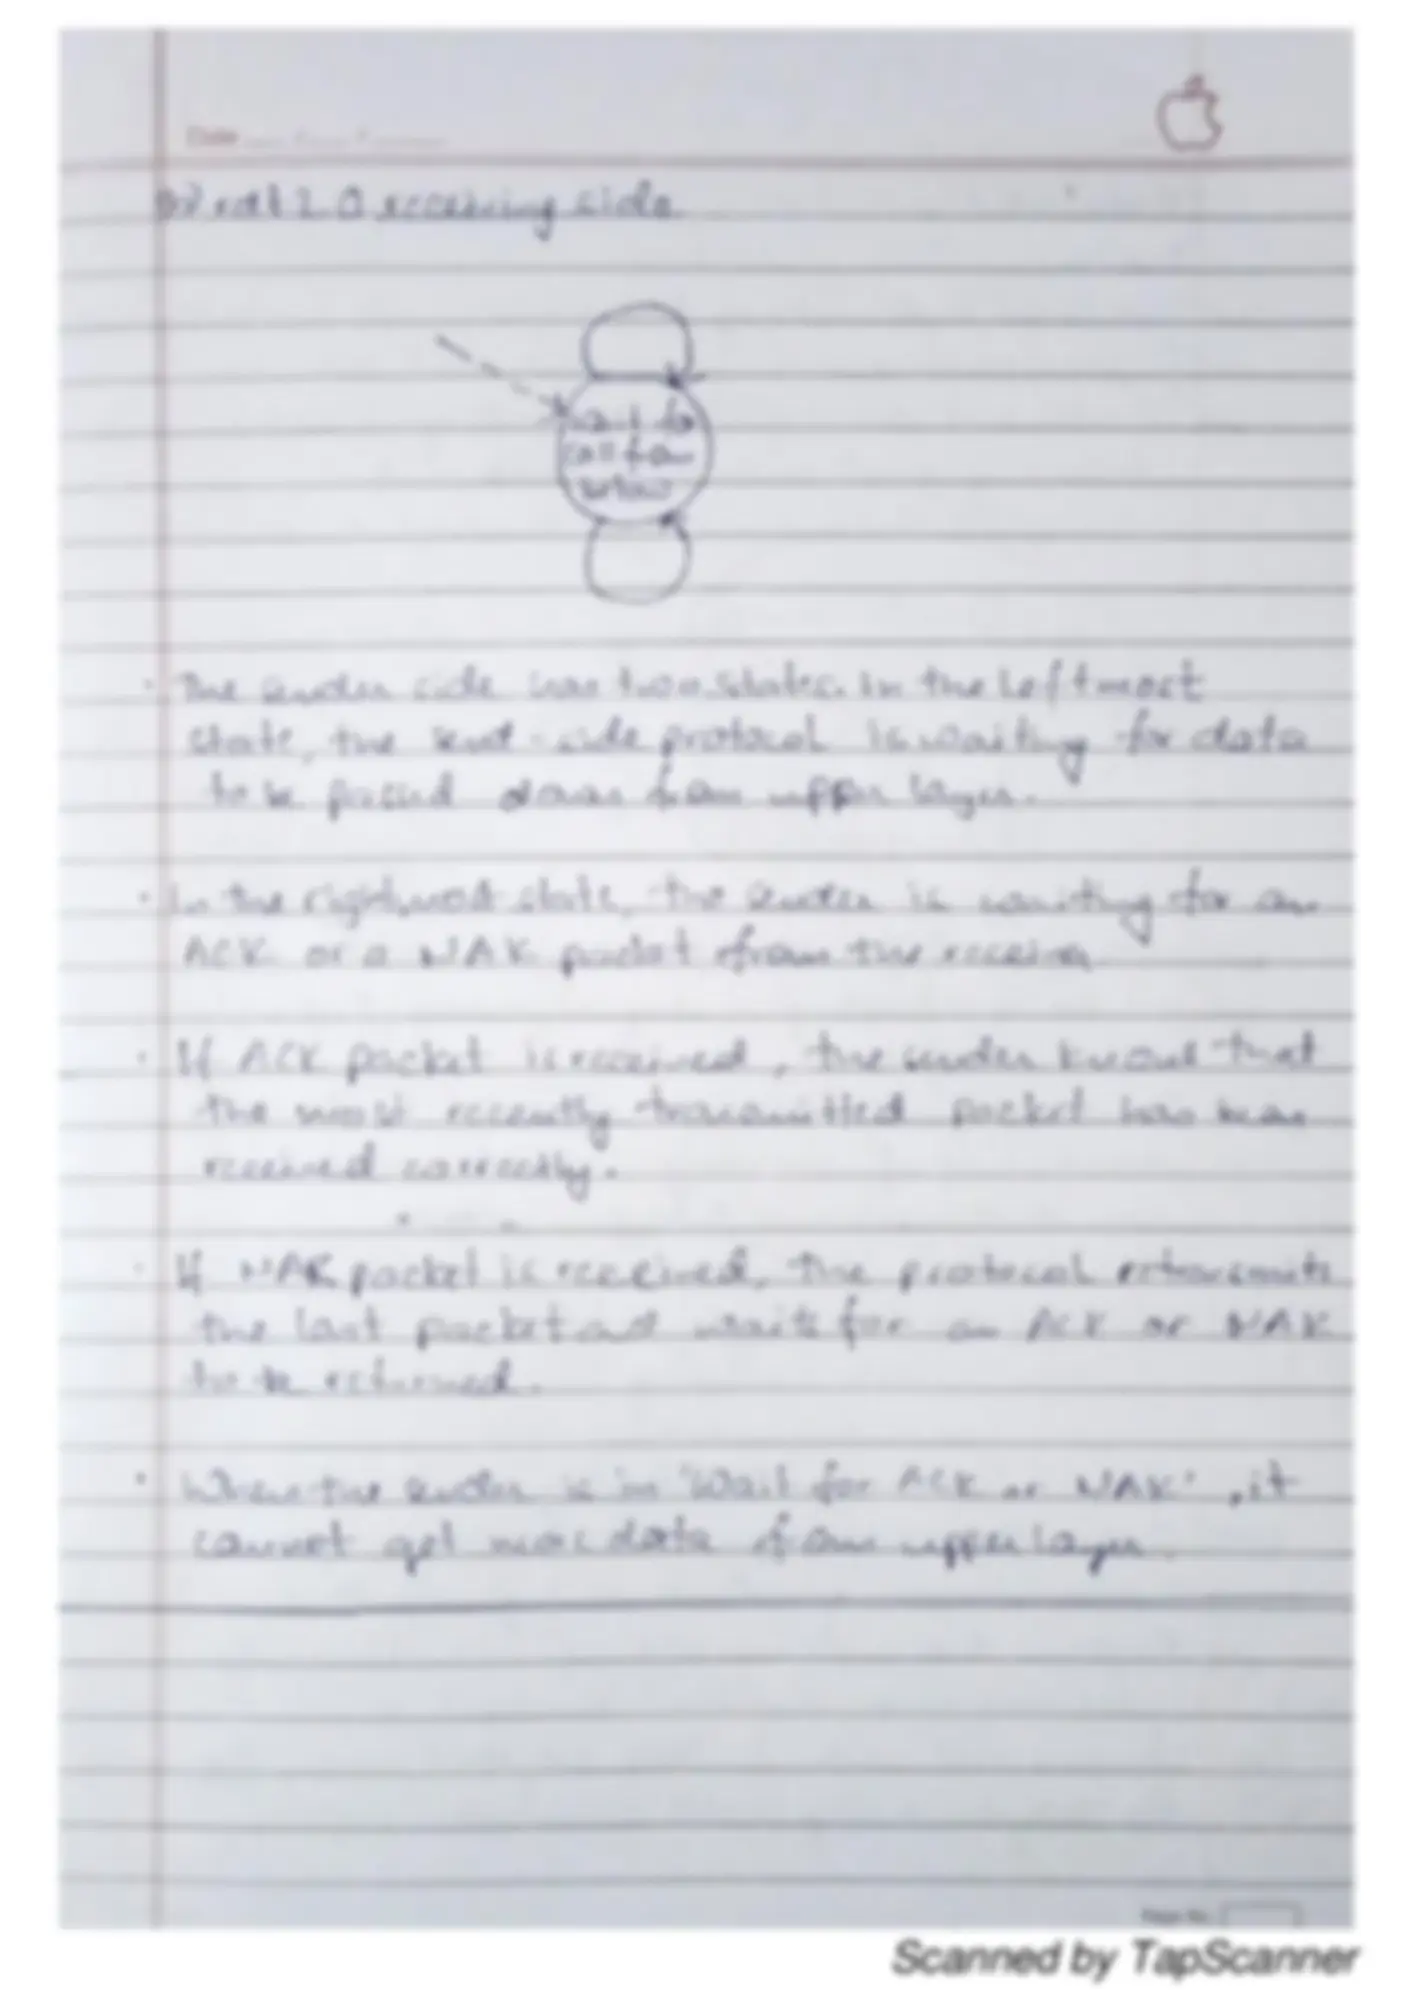 Date
rdt 2.0 receiving side
wait for
call from
below
The sender side has two states. In the leftmost
state, the send-side protocol is waiting for data
to be passed down from upper layer.
In the rightmost state, the sender is waiting for an
ACK or a NAK packet from the receiver
If ACK packet is received, the sender knows that
the most recently transmitted packet has been
received correctly.
If NAK packet is received, the protocol retransmits
the last packet and waits for an ACK or NAK
to be returned.
When the sender is in "Wait for ACK or NAK", it
cannot get more data from upper layer.
Page No.
Scanned by TapScanner